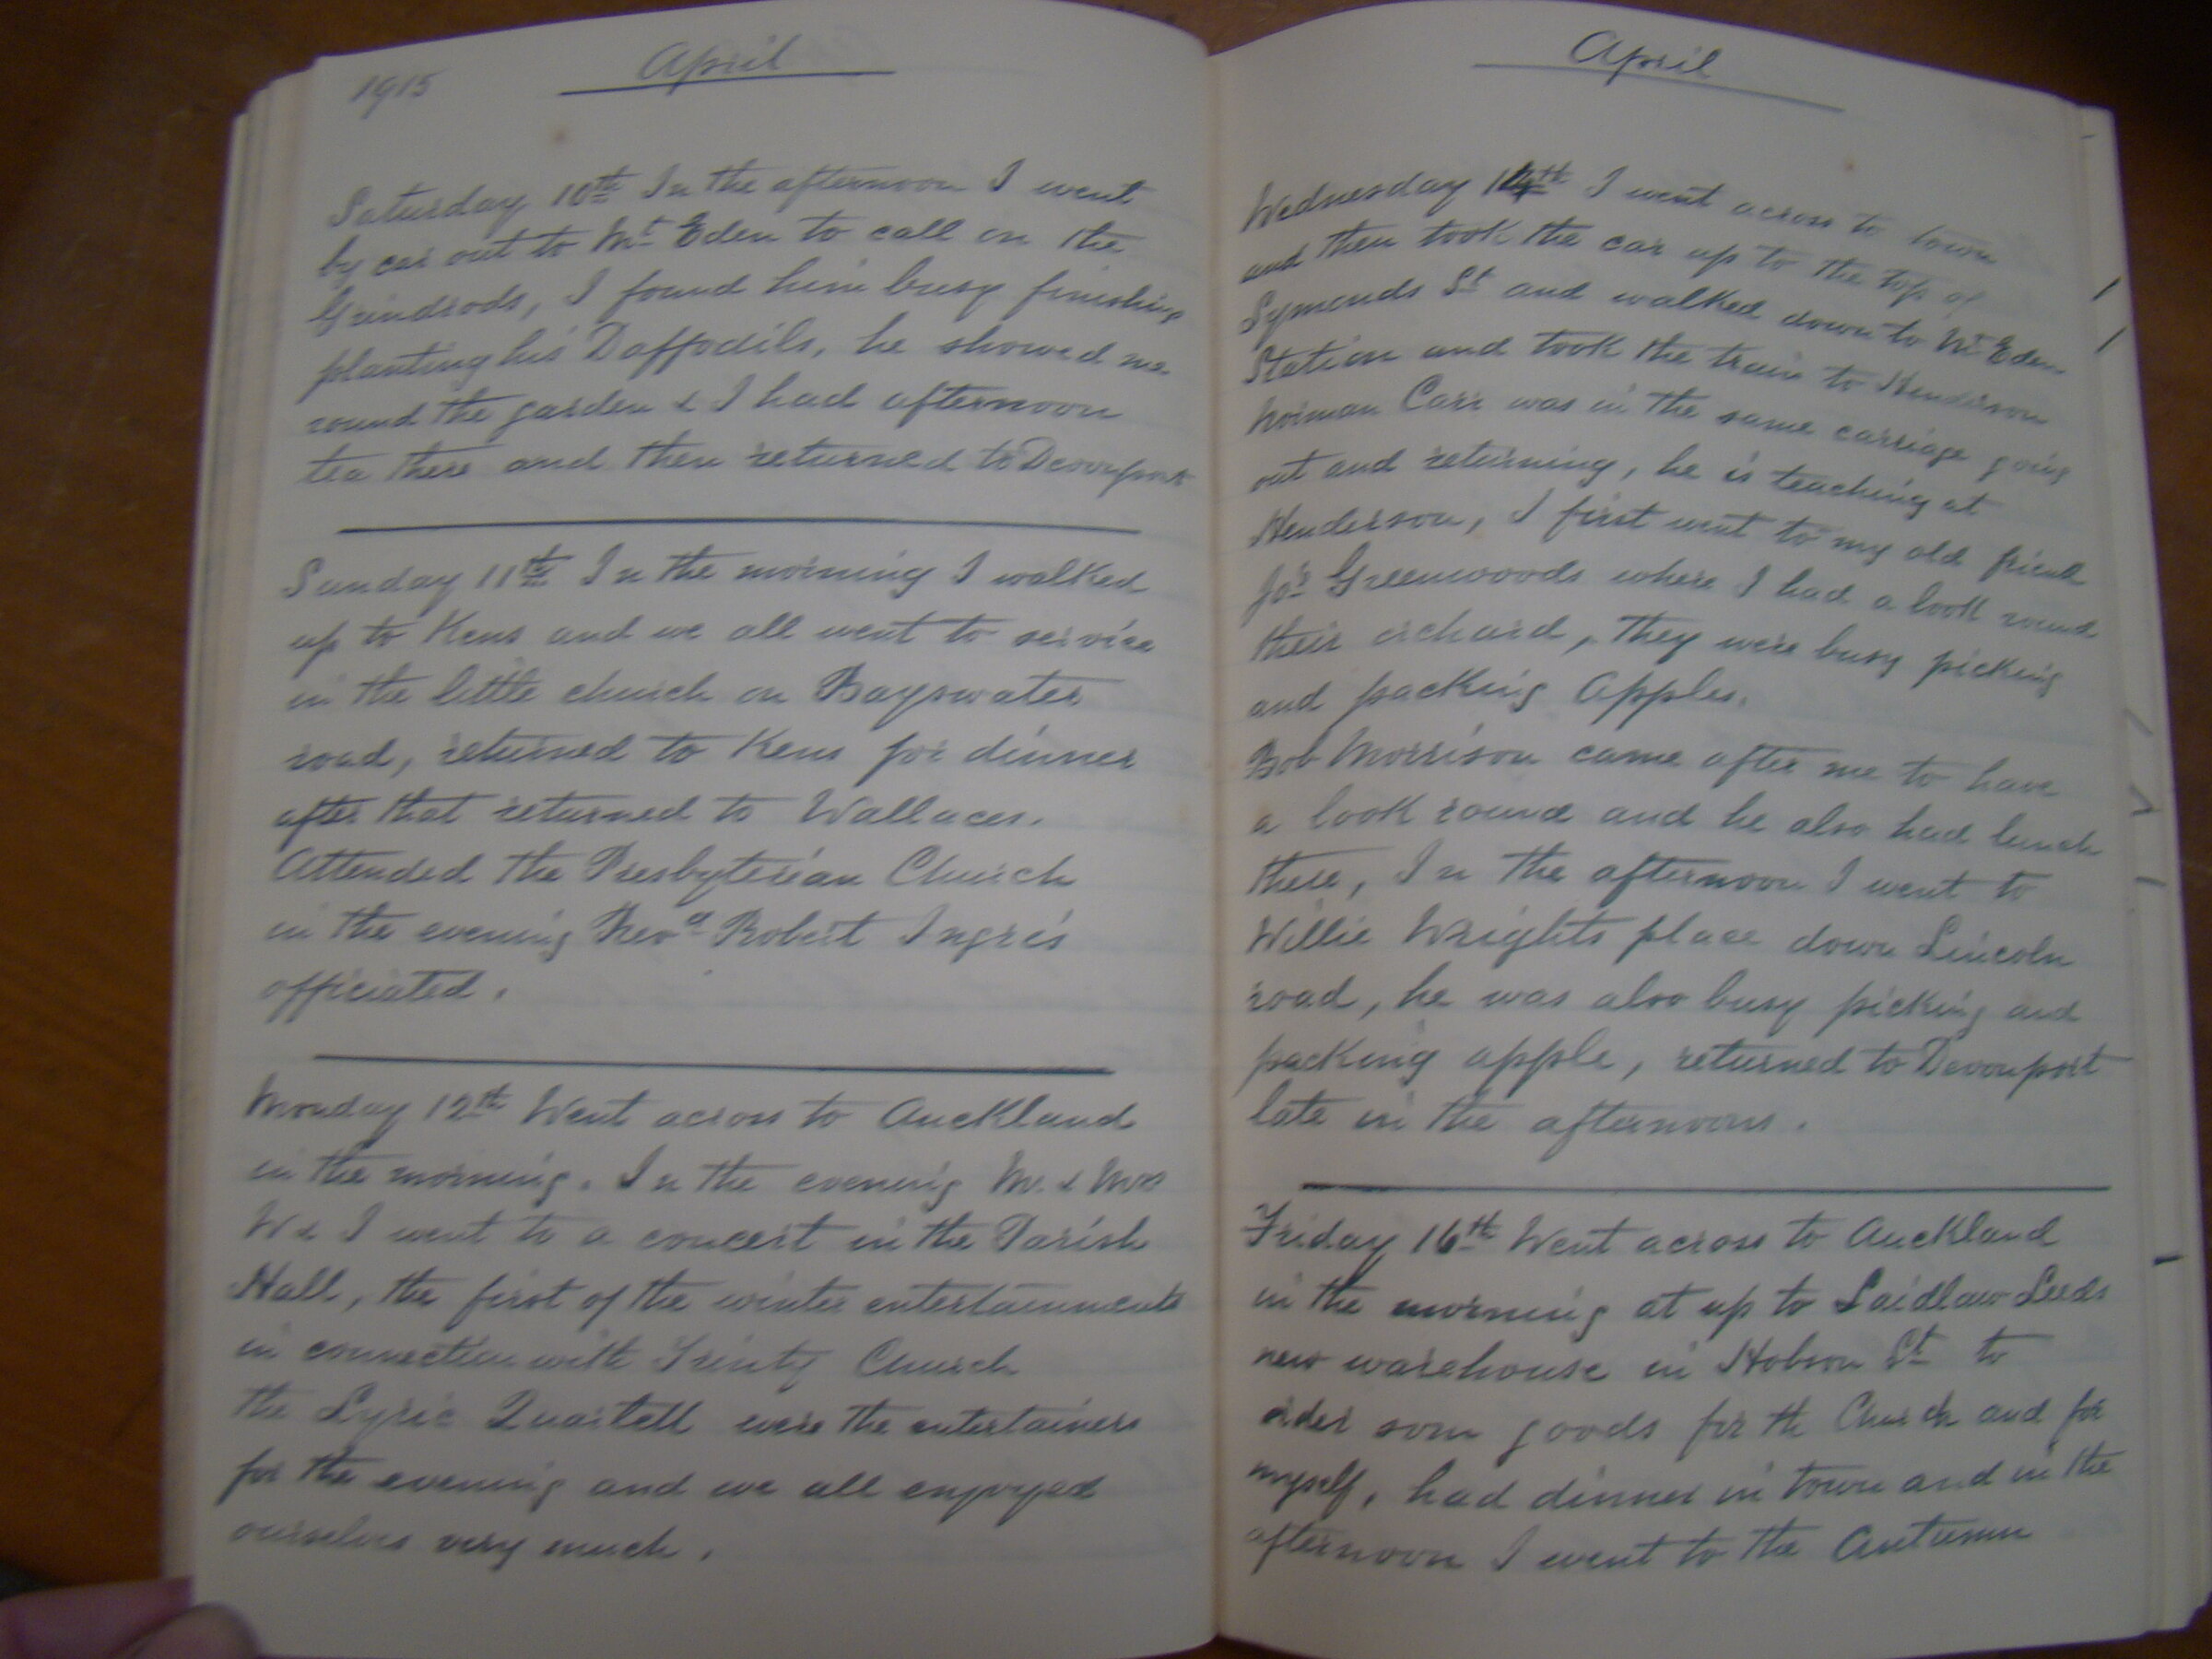 1915
April
Saturday 10th In the afternoon I went
by car out to Mt Eden to call on the
Grindrods, I found him busy finishing
planting his Daffodils, he showed me
round the garden & I had afternoon
tea there and then returned to Devonport
Sunday 11th In the morning I walked
up to Kens and we all went to service
in the little church on Bayswater
road, returned to Kens for dinner
after that returned to Wallaces.
Attended the Presbyterian Church
in the evening Revd Robert Ingres
officiated.
Monday 12th Went across to Auckland
in the morning. In the evening Mr. & Mrs
W & I went to a concert in the Parish
Hall, the first of the winter entertainments
in connection with Trinity Church
the Lyric Quartell were the entertainers
for the evening and we all enjoyed
ourselves very much.
April
Wednesday 14th I went across to town
and then took the car up to the top of
Symonds St and walked down to Mt Eden
Station and took the train to Henderson
Norman Carr was in the same carriage going
out and returning, he is teaching at
Henderson, I first went to my old friend
Jos Greenwoods where I had a look round
their orchard, they were busy picking
and packing Apples.
Bob Morrison came after me to have
a look round and he also had lunch
there, In the afternoon I went to
Willie Wrights place down Lincoln
road, he was also busy picking and
packing apple, returned to Devonport
late in the afternoons.
Friday 16th Went across to Auckland
in the morning at up to Laidlaw Leeds
new warehouse in Hobson St to
order som goods for th Church and for
myself, had dinner in town and in the
afternoon I went to the Autumn